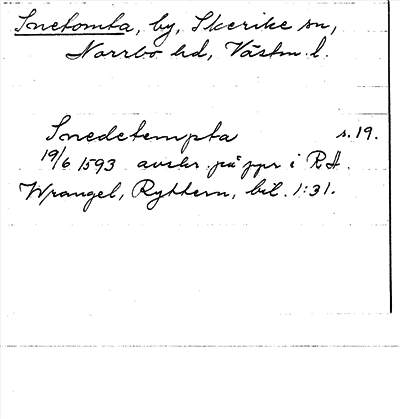 Snetomta, by, Skerike sn,
Norrbo hd, Västm. l.
Snedetempta s. 19.
19/6 1593 avskr. på ppr i RA.
Wrangel, Ryttern, bil. 1:31.